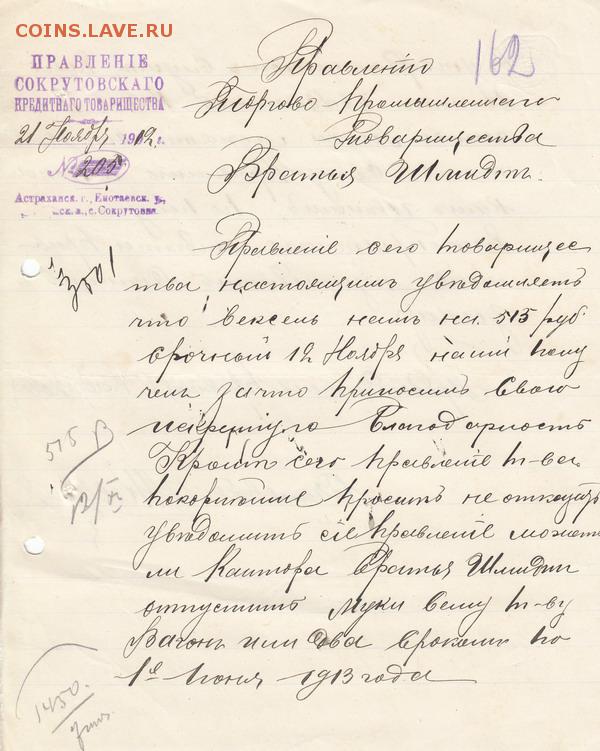 COINS.LAVE.RU
ПРАВЛЕНІЕ
СОКРУТОВСКАГО
КРЕДИТНАГО ТОВАРИЩЕСТВА
21 Ноября 1912 г.
№ 205
Астраханск. г., Енотаевск. у.,
с. Сокрутовка.
Правленію 162
Торгово Промышленнаго
Товарищества
Братья Шмидтъ.
Правленіе сего товарищес
тва настоящимъ увѣдомляетъ
3501
что вексель нашъ на 515 руб.
срочный 12 Ноября нами полу
ченъ за что приносимъ Свою
искреннюю Благодарность
515
Кромѣ сего правленіе т-ва
покорнѣйше проситъ не отказать
увѣдомить сіе правленіе можетъ
ли Кантора Братья Шмидтъ
отпустить муки сему т-ву
Вагонъ или два срокомъ по
1е Іюня 1913 года
1450.